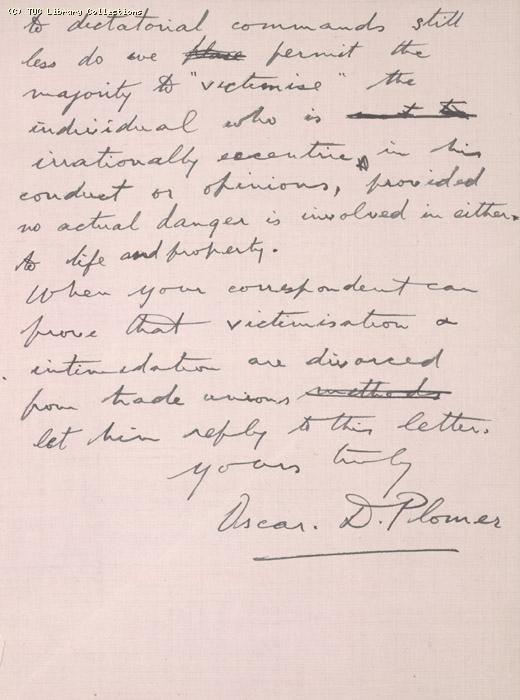 (C) TUC Library Collections
to dictatorial commands still
less do we permit the
majority to "victimise" the
individual who is
irrationally eccentric, in his
conduct or opinions, provided
no actual danger is involved in either.
to life and property.
When your correspondent can
prove that victimisation &
intimidation are divorced
from trade unions methods
let him reply to this letter.
yours truly
Oscar. D. Plomer